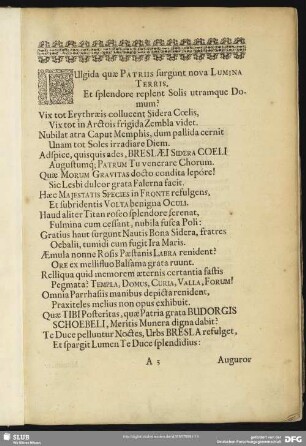 FUlgida quæ PATRIIS surgunt nova LUMINA
TERRIS,
Et splendore replent Solis utramque Do-
mum?
Vix tot Erythræis collucent Sidera Cœlis,
Vix tot in Arctois frigida Zembla videt.
Nubilat atra Caput Memphis, dum pallida cernit
Unam tot Soles irradiare Diem.
Adspice, quisquis ades, BRESLÆ SIDERA COELI
Augustumq; PATRUM Tu venerare Chorum.
Quæ MORUM GRAVITAS docto condita lepôre!
Sic Lesbi dulcor grata Falerna facit.
Hæc MAJESTATIS SPECIES in FRONTE refulgens,
Et subridentis VOLTA benigna OCULI.
Haud aliter Titan roseo splendore serenat,
Fulmina cum cessant, nubila fusca Poli:
Gratius haut surgunt Nautis Bona Sidera, fratres
Oebalii, tumidi cum fugit Ira Maris.
Æmula nonne Rosis Pæstanis LABRA renident?
ORE ex mellifluo Balsama grata ruunt.
Relliqua quid memorem æternis certantia fastis
Pegmata? TEMPLA, DOMUS, CURIA, VALLA, FORUM?
Omnia Parrhasiis manibus depicta renident,
Praxiteles melius non opus exhibuit.
Quæ TIBI Posteritas, quæ Patria grata BUDORGIS
SCHOEBELI, Meritis Munera digna dabit?
Te Duce pelluntur Noctes, Urbs BRESLA refulget,
Et spargit Lumen Te Duce splendidius:
A 5
Auguror
SLUB
Wir führen Wissen.
gefördert von der
Deutschen Forschungsgemeinschaft
DFG